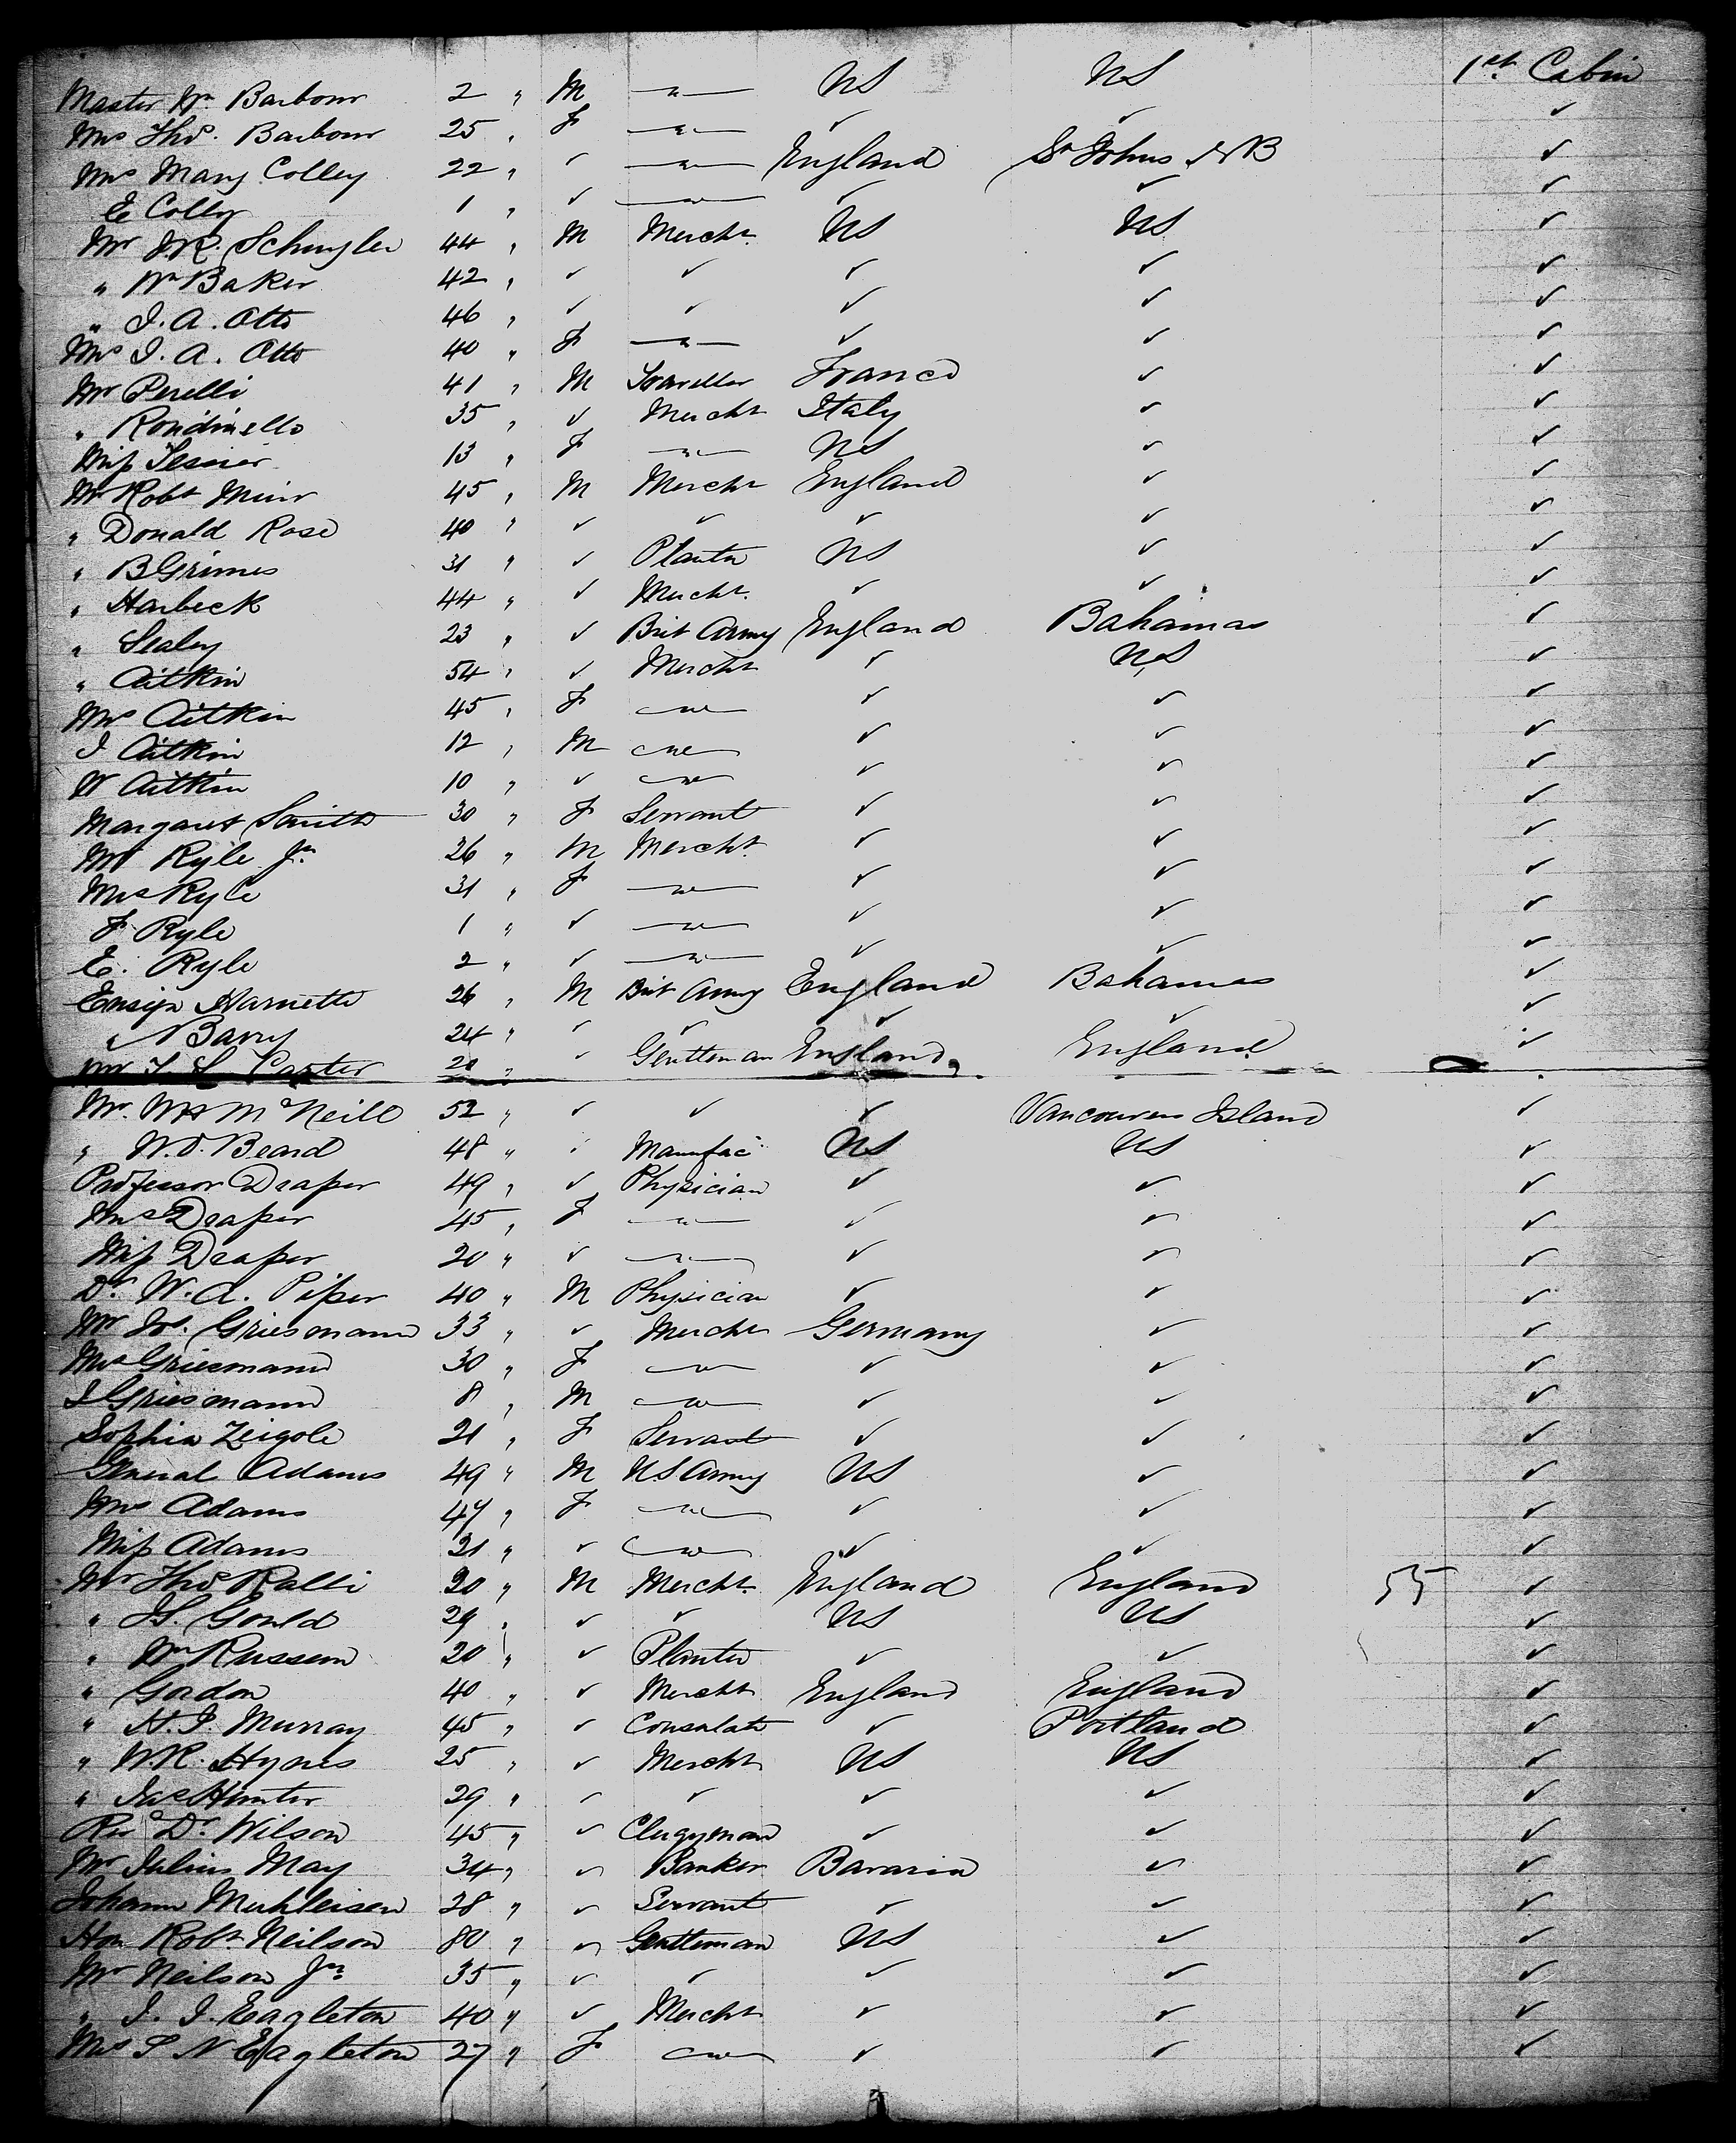 1st Cabin
Master Wm Barbour 2 " M — " — US US
Mrs Thos. Barbour 25 " F — " — ✓ ✓ ✓
Mrs Mary Colley 22 " ✓ — " — England St Johns NB ✓
E Colly 1 " ✓ — " — ✓ ✓ ✓
Mr J.R. Schuyler 44 " M Mercht US US ✓
" Wm Baker 42 " ✓ ✓ ✓ ✓ ✓
" J. A. Otto 46 " ✓ ✓ ✓ ✓ ✓
Mrs J. A. Otto 40 " F — " — ✓ ✓ ✓
Mr Perelli 41 " M Traveller France ✓ ✓
" Rondinello 35 " ✓ Mercht Italy ✓ ✓
Miss Tessier 13 " F — " — US ✓ ✓
Mr Robt Muir 45 " M Mercht England ✓ ✓
" Donald Rose 40 " ✓ ✓ ✓ ✓ ✓
" B Grimes 31 " ✓ Planter US ✓ ✓
" Harbeck 44 " ✓ Mercht. ✓ ✓ ✓
" Sealey 23 " ✓ Brit Army England Bahamas ✓
" Aitkin 54 " ✓ Mercht ✓ US ✓
Mrs Aitkin 45 " F — " — ✓ ✓ ✓
J Aitkin 12 " M — " — ✓ ✓ ✓
W Aitkin 10 " ✓ — " — ✓ ✓ ✓
Margaret Smith 30 " F Servant ✓ ✓ ✓
Mr Ryle Jr. 26 " M Mercht. ✓ ✓ ✓
Mrs Ryle 31 " F — " — ✓ ✓ ✓
F Ryle 1 " ✓ — " — ✓ ✓ ✓
E. Ryle 2 " ✓ — " — ✓ ✓ ✓
Ensign Harnette 26 " M Brit Army England Bahamas ✓
" N Barry 24 " ✓ ✓ ✓ ✓ ✓
Mr T S Carter 28 " ✓ Gentleman England England ✓
Mr. WH McNeill 52 " ✓ ✓ ✓ Vancouvers Island ✓
" W.D. Beard 48 " ✓ Manufac US US ✓
Professor Draper 49 " ✓ Physician ✓ ✓ ✓
Mrs Draper 45 " F — " — ✓ ✓ ✓
Miss Draper 20 " ✓ — " — ✓ ✓ ✓
Dr. W. A. Piper 40 " M Physician ✓ ✓ ✓
Mr Jos. Griesmann 33 " ✓ Mercht Germany ✓ ✓
Mrs Griesmann 30 " F — " — ✓ ✓ ✓
J Griesmann 8 " M — " — ✓ ✓ ✓
Sophia Zeigole 21 " F Servant ✓ ✓ ✓
General Adams 49 " M US Army US ✓ ✓
Mrs Adams 47 " F — " — ✓ ✓ ✓
Miss Adams 21 " ✓ — " — ✓ ✓ ✓
Mr Thos Ralli 20 " M Mercht. England England 55 ✓
" H. Gould 29 " ✓ ✓ US US ✓
" Wm Russem 20 " ✓ Planter ✓ ✓ ✓
" Gordon 40 " ✓ Mercht England England ✓
" H. J. Murray 45 " ✓ Consulate ✓ Portland ✓
" W.R. Hynes 25 " ✓ Mercht US US ✓
" Jas Hunter 29 " ✓ ✓ ✓ ✓ ✓
Rev Dr. Wilson 45 " ✓ Clergyman ✓ ✓ ✓
Mr Julius May 34 " ✓ Banker Bavaria ✓ ✓
Johann Muhleisen 28 " ✓ Servant ✓ ✓ ✓
Hon Robt. Neilson 80 " ✓ Gentleman US ✓ ✓
Mr Neilson Jr. 35 " ✓ ✓ ✓ ✓ ✓
" J. J. Eagleton 40 " ✓ Mercht ✓ ✓ ✓
Mrs S N Eagleton 27 " F — " — ✓ ✓ ✓